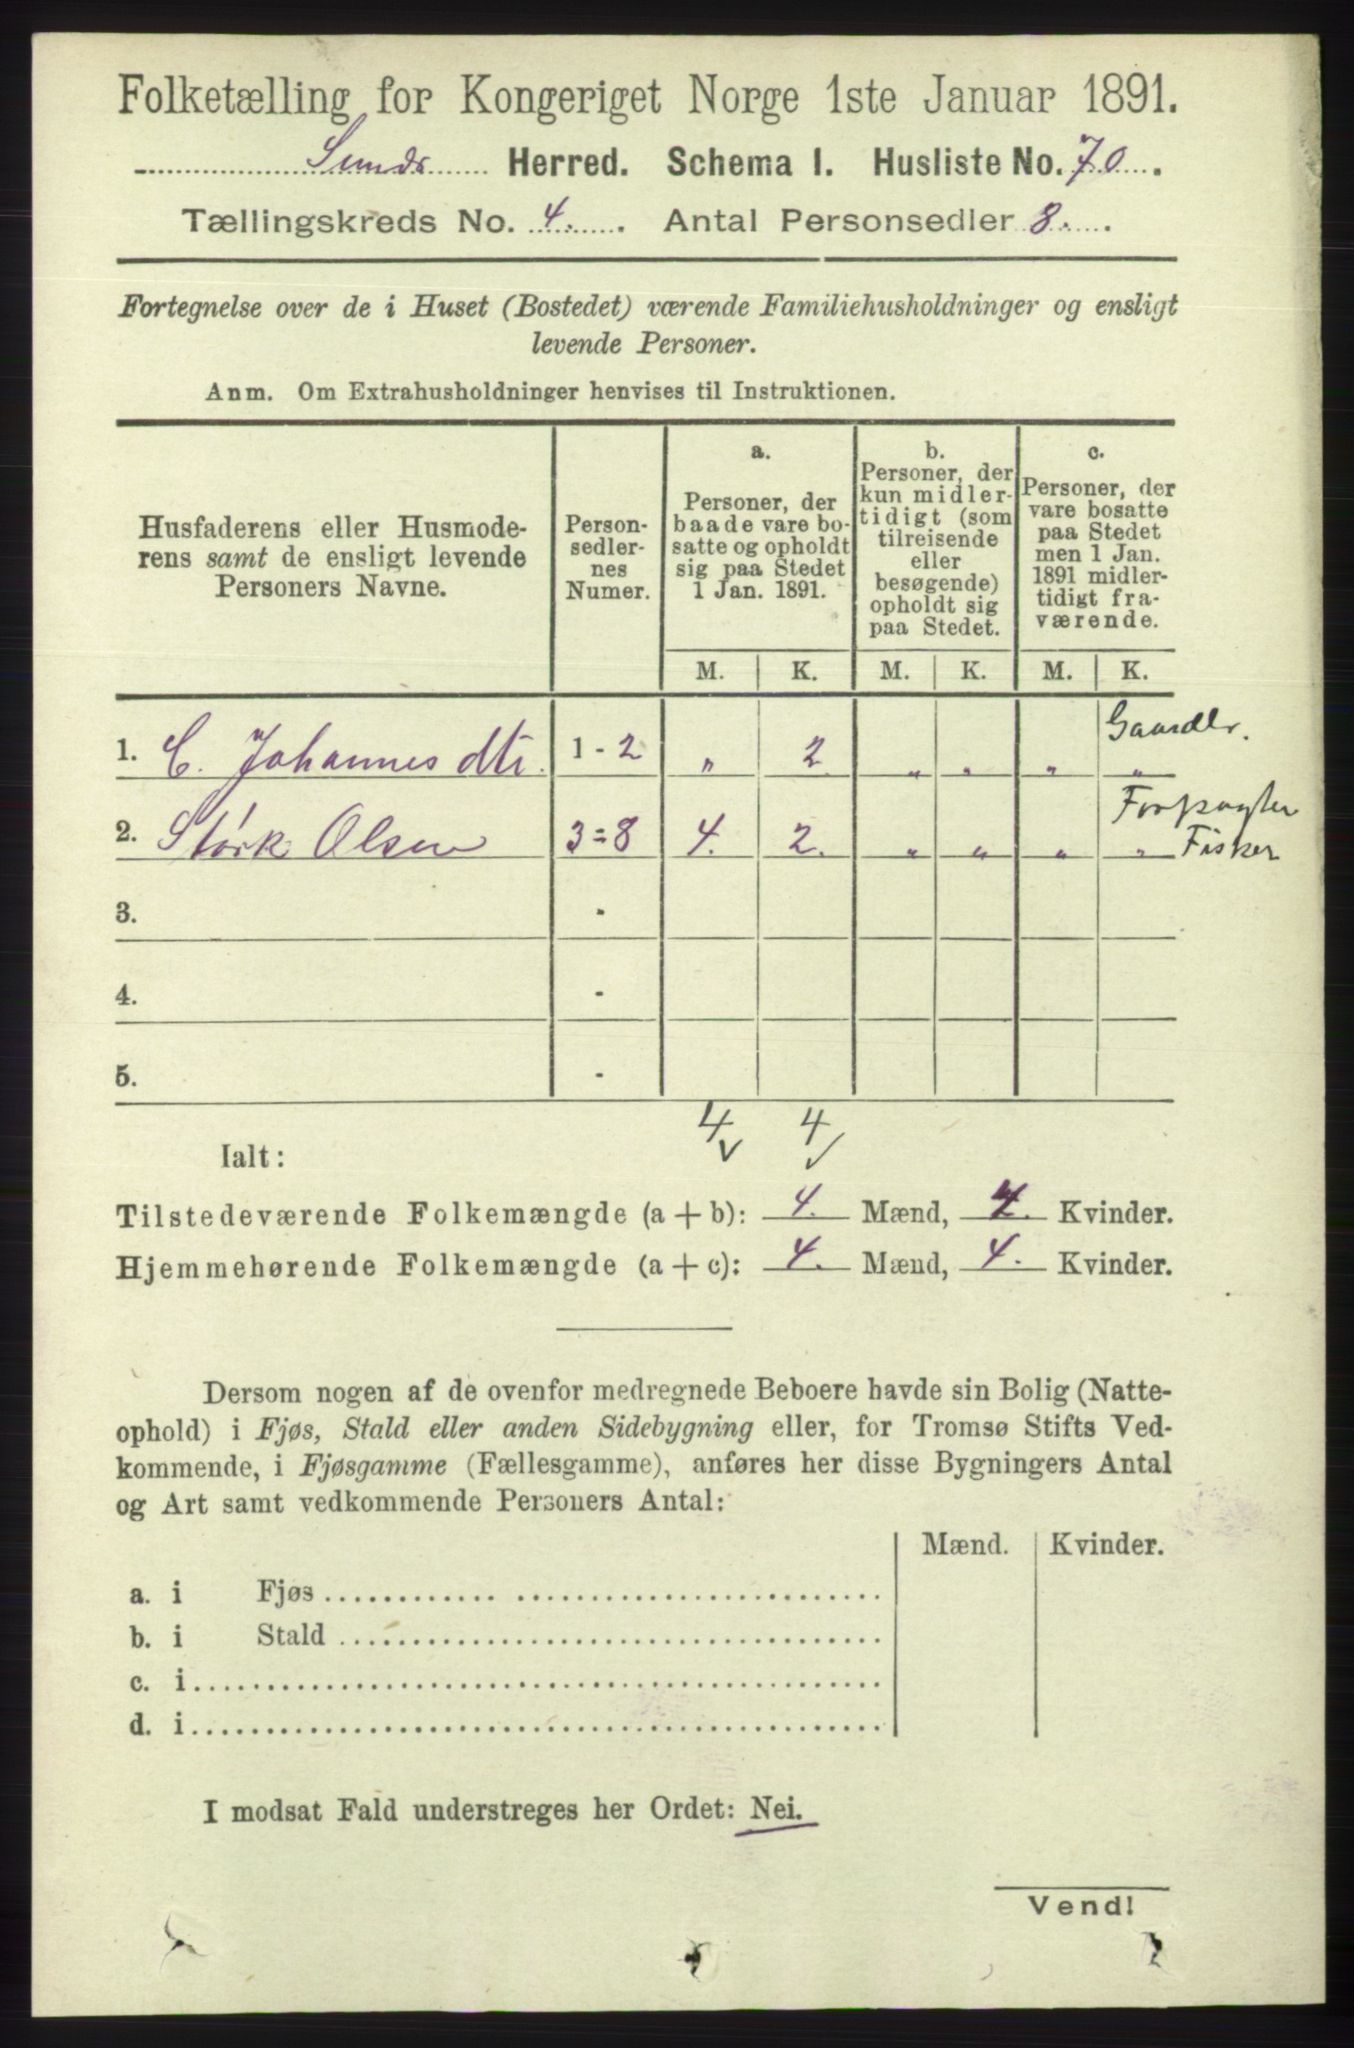 Folketælling for Kongeriget Norge 1ste Januar 1891.
Sunds Herred. Schema I. Husliste No. 70.
Tællingskreds No. 4. Antal Personsedler 8.
Fortegnelse over de i Huset (Bostedet) værende Familiehusholdninger og ensligt
levende Personer.
Anm. Om Extrahusholdninger henvises til Instruktionen.
Husfaderens eller Husmode-
rens samt de ensligt levende
Personers Navne.
Person-
sedler-
nes
Numer.
a.
Personer, der
baade vare bo-
satte og opholdt
sig paa Stedet
1 Jan. 1891.
b.
Personer, der
kun midler-
tidigt (som
tilreisende
eller
besøgende)
opholdt sig
paa Stedet.
c.
Personer, der
vare bosatte
paa Stedet
men 1 Jan.
1891 midler-
tidigt fra-
værende.
M. K. M. K. M. K.
Gaardbr.
1. C. Johannesdtr. 1 - 2 „ 2 „ „ „ „
Forpagter
2. Størk Olsen 3=8 4. 2. „ „ „ „ Fisker
3. -
4. -
5. -
4 4
Ialt:
Tilstedeværende Folkemængde (a + b): 4. Mænd, 4. Kvinder.
Hjemmehørende Folkemængde (a + c): 4. Mænd, 4. Kvinder.
Dersom nogen af de ovenfor medregnede Beboere havde sin Bolig (Natte-
ophold) i Fjøs, Stald eller anden Sidebygning eller, for Tromsø Stifts Ved-
kommende, i Fjøsgamme (Fællesgamme), anføres her disse Bygningers Antal
og Art samt vedkommende Personers Antal:
Mænd. Kvinder.
a. i Fjøs
b. i Stald
c. i
d. i
I modsat Fald understreges her Ordet: Nei.
Vend!